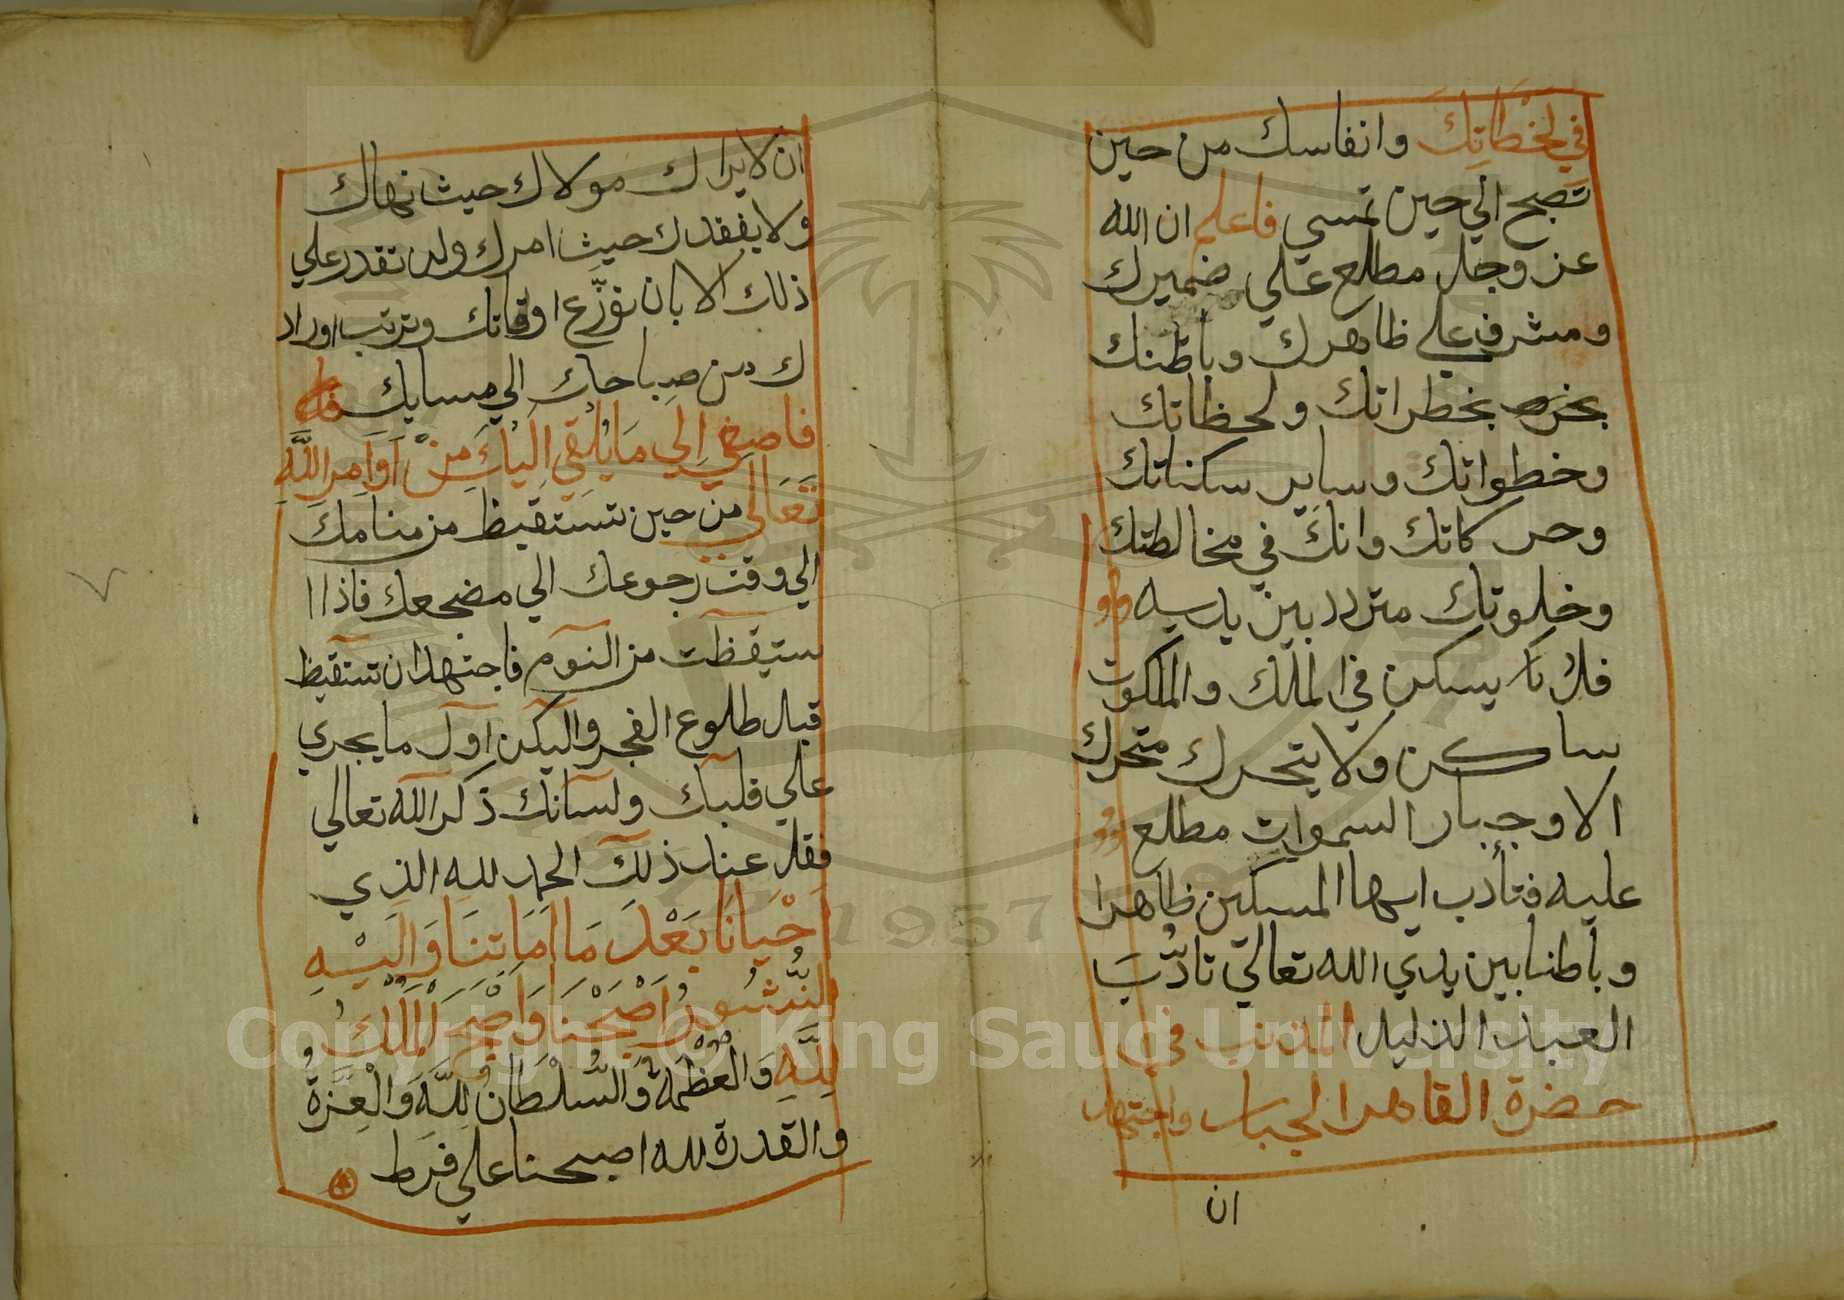 في لحظاتك وانفاسك من حين
تصبح الي حين تمسي فاعلم ان الله
عز وجل مطلع علي ضميرك
ومشرف علي ظاهرك وباطنك
بخطراتك ولحظاتك
وخطواتك وساير سكناتك
وحركاتك وانك في مخالطتك
وخلوتك متردد بين يديه
فلا يسكن في الملك والملكوت
ساكن ولا يتحرك متحرك
الا وجبار السموات مطلع
عليه فتأدب ايها المسكين ظاهرا
وباطنا بين يدي الله تعالي تادّبَ
العبد الذليل المذنب في
حضرة القاهر الجبار واجتهد
ان
ان لا يراك مولاك حيث نهاك
ولا يفقدك حيث امرك ولن تقدر علي
ذلك الا بان توزّع اوقاتك وترتب اوراد
ك من صباحك الي مسايك
فاصغي اِلي مَا يُلْقي اِلَيْكَ مِنْ اَوَامِرِ اللَّهِ
تَعَالي من حين تستقيظ من منامك
الي وقت رجوعك الي مضجعك فاذا ا
ستيقظت من النوم فاجتهد ان تستقيظ
قبل طلوع الفجر واليكن اول ما يجري
علي قلبك ولسانك ذكر الله تعالي
فقل عند ذلك الحمد لله الذي
اَحْيَانَا بَعْدَ مَا اَمَاتَنَا وَاِلَيْهِ
النُّشُورُ اَصْبَحْنَا وَاَصْبَحَ الْمُلْكُ
لِلَّهِ وَالْعُظْمَةُ وَالسُّلْطَانُ لِلَّهِ وَالْعِزَّةُ
والقدرة لله اصبحنا علي فرط
Copyright © King Saud University
1957